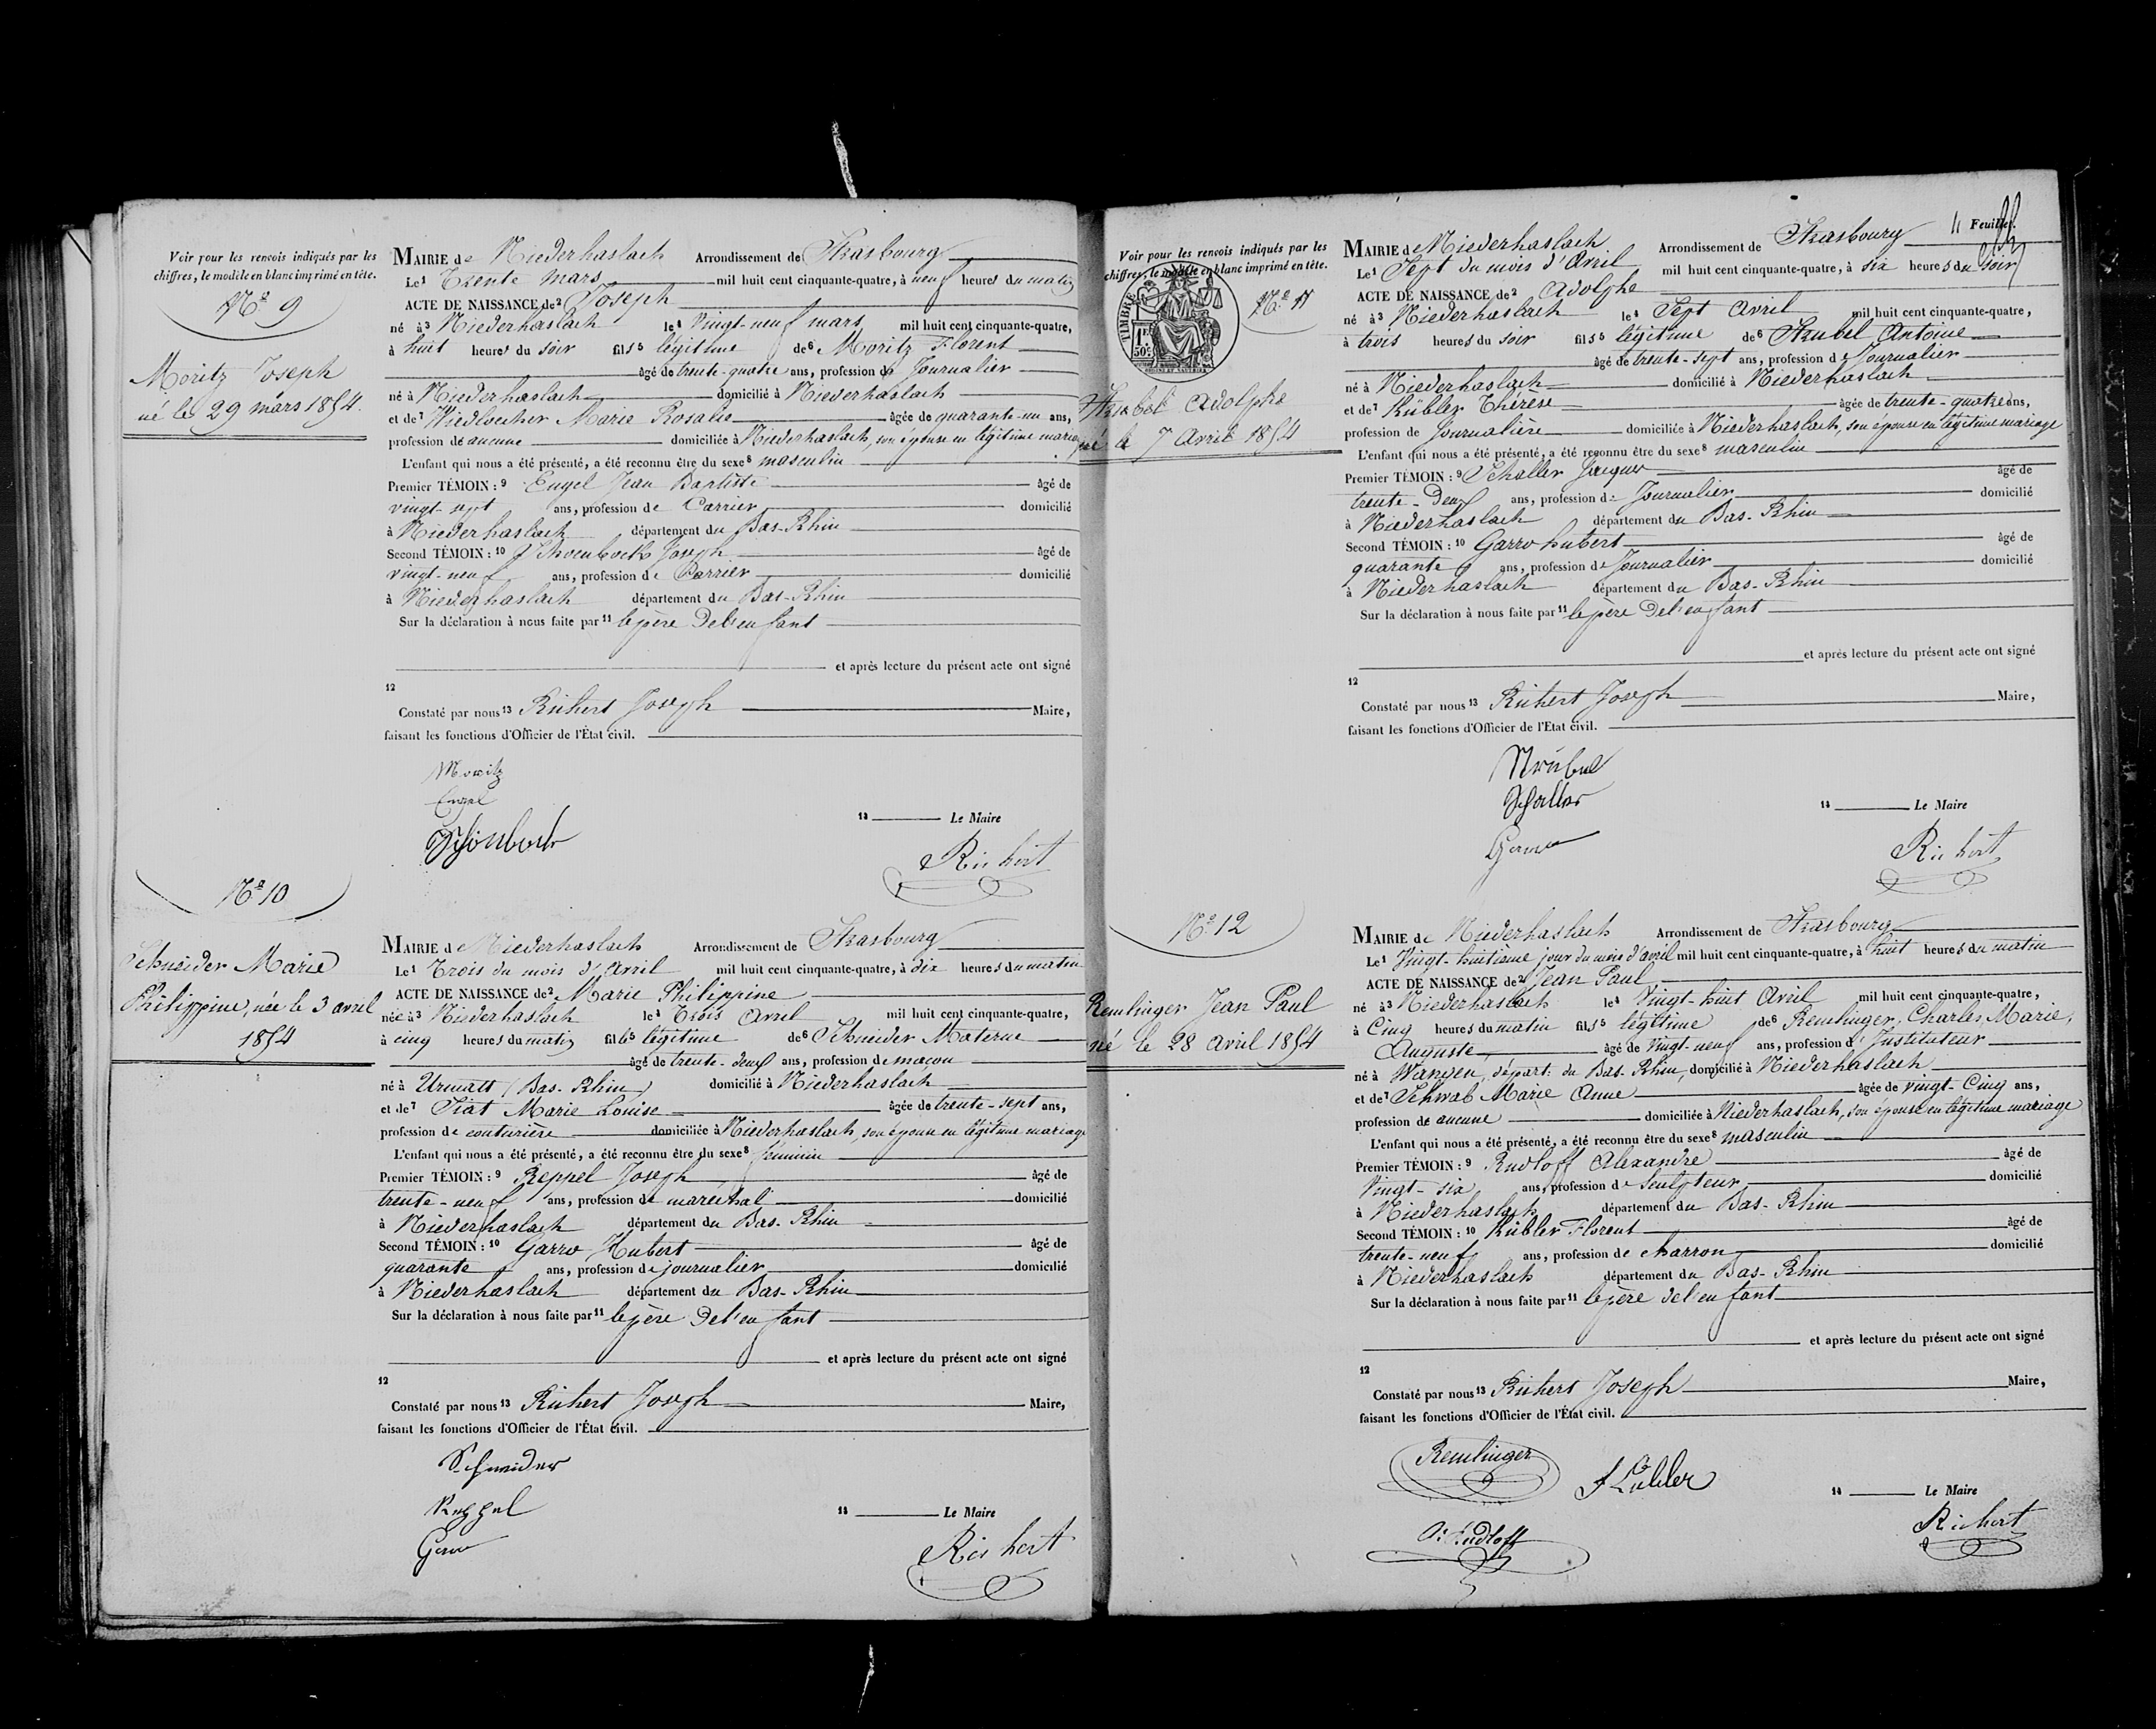 Voir pour les renvois indiqués par les
chiffres, le modèle en blanc imprimé en tête.
Nº 9
Moritz Joseph
né le 29 mars 1854.
MAIRIE de Niederhaslach Arrondissement de Strasbourg
Le1 Trente mars mil huit cent cinquante-quatre, à neuf heures du matin
ACTE DE NAISSANCE de2 Joseph
né à3 Niederhaslach le4 Vingt-neuf mars mil huit cent cinquante-quatre,
à huit heures du soir fils5 légitime de6 Moritz Florent
âgé de trente-quatre ans, profession de Journalier
né à Niederhaslach domicilié à Niederhaslach
et de7 Wiedlocher Marie Rosalie âgée de quarante-un ans,
profession de aucune domiciliée à Niederhaslach, son épouse en légitime mariage
L'enfant qui nous a été présenté, a été reconnu être du sexe8 masculin
Premier TÉMOIN : 9 Engel Jean Baptiste âgé de
vingt-sept ans, profession de Carrier domicilié
à Niederhaslach département du Bas-Rhin
Second TÉMOIN : 10 Schoenbock Joseph âgé de
vingt-neuf ans, profession de Carrier domicilié
à Niederhaslach département du Bas-Rhin
Sur la déclaration à nous faite par11 le père de l'enfant
et après lecture du présent acte ont signé
12
Constaté par nous13 Richert Joseph Maire,
faisant les fonctions d'Officier de l'État civil.
Moritz
Engel
Schönbock
14 Le Maire
Richert
Nº 10
Schneider Marie
Philippine, née le 3 avril
1854
MAIRIE de Niederhaslach Arrondissement de Strasbourg
Le1 Trois du mois d'Avril mil huit cent cinquante-quatre, à dix heures du matin
ACTE DE NAISSANCE de2 Marie Philippine
née à3 Niederhaslach le4 Trois Avril mil huit cent cinquante-quatre,
à cinq heures du matin fille5 légitime de6 Schneider Materne
âgé de trente-deux ans, profession de maçon
né à Urmatt (Bas-Rhin) domicilié à Niederhaslach
et de7 Siat Marie Louise âgée de trente-sept ans,
profession de couturière domiciliée à Niederhaslach, son épouse en légitime mariage
L'enfant qui nous a été présenté, a été reconnu être du sexe8 féminin
Premier TÉMOIN : 9 Reppel Joseph âgé de
trente-neuf ans, profession de maréchal domicilié
à Niederhaslach département du Bas-Rhin
Second TÉMOIN : 10 Garro Hubert âgé de
quarante ans, profession de journalier domicilié
à Niederhaslach département du Bas-Rhin
Sur la déclaration à nous faite par11 le père de l'enfant
et après lecture du présent acte ont signé
12
Constaté par nous13 Richert Joseph Maire,
faisant les fonctions d'Officier de l'État civil.
Schneider
Reppel
Garro
14 Le Maire
Richert
11 Feuillet.
Voir pour les renvois indiqués par les
chiffres, le modèle en blanc imprimé en tête.
TIMBRE
1F
50c
Nº 11
Strubel Adolphe
né le 7 Avril 1854
MAIRIE de Niederhaslach Arrondissement de Strasbourg
Le1 Sept du mois d'Avril mil huit cent cinquante-quatre, à six heures du soir
ACTE DE NAISSANCE de2 Adolphe
né à3 Niederhaslach le4 Sept Avril mil huit cent cinquante-quatre,
à trois heures du soir fils5 légitime de6 Strubel Antoine
âgé de trente-sept ans, profession de Journalier
né à Niederhaslach domicilié à Niederhaslach
et de7 Kübler Thérèse âgée de trente-quatre ans,
profession de Journalière domiciliée à Niederhaslach, son épouse en légitime mariage
L'enfant qui nous a été présenté, a été reconnu être du sexe8 masculin
Premier TÉMOIN : 9 Schaller Jacques âgé de
trente-deux ans, profession de Journalier domicilié
à Niederhaslach département du Bas-Rhin
Second TÉMOIN : 10 Garro hubert âgé de
quarante ans, profession de Journalier domicilié
à Niederhaslach département du Bas-Rhin
Sur la déclaration à nous faite par11 le père de l'enfant
et après lecture du présent acte ont signé
12
Constaté par nous13 Richert Joseph Maire,
faisant les fonctions d'Officier de l'État civil.
Strubel
Schaller
Garro
14 Le Maire
Richert
Nº 12
Remlinger Jean Paul
né le 28 avril 1854
MAIRIE de Niederhaslach Arrondissement de Strasbourg
Le1 Vingt-huitième jour du mois d'avril mil huit cent cinquante-quatre, à huit heures du matin
ACTE DE NAISSANCE de2 Jean Paul
né à3 Niederhaslach le4 Vingt-huit Avril mil huit cent cinquante-quatre,
à Cinq heures du matin fils5 légitime de6 Remlinger, Charles, Marie,
Auguste, âgé de vingt-neuf ans, profession d'Instituteur
né à Wangen, départ. du Bas-Rhin, domicilié à Niederhaslach
et de7 Schwab Marie Anne âgée de vingt-Cinq ans,
profession de aucune domiciliée à Niederhaslach, son épouse en légitime mariage
L'enfant qui nous a été présenté, a été reconnu être du sexe8 masculin
Premier TÉMOIN : 9 Rudloff Alexandre âgé de
Vingt-six ans, profession de Sculpteur domicilié
à Niederhaslach département du Bas-Rhin
Second TÉMOIN : 10 Kübler Florent âgé de
trente-neuf ans, profession de charron domicilié
à Niederhaslach département du Bas-Rhin
Sur la déclaration à nous faite par11 le père de l'enfant
et après lecture du présent acte ont signé
12
Constaté par nous13 Richert Joseph Maire,
faisant les fonctions d'Officier de l'État civil.
Remlinger
F Kübler
A. Rudloff
14 Le Maire
Richert